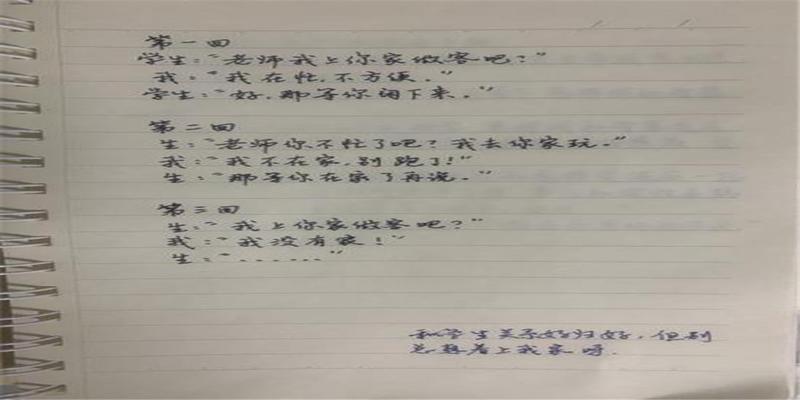 第一回
学生:“老师我上你家做客吧?”
我:“我在忙,不方便。”
学生:“好,那等你闲下来。”
第二回
生:“老师你不忙了吧?我去你家玩。”
我:“我不在家,别跑了!”
生:“那等你在家了再说。”
第三回
生:“我上你家做客吧?”
我:“我没有家!”
生:“......”
和学生关系好归好,但别
总想着上我家呀.